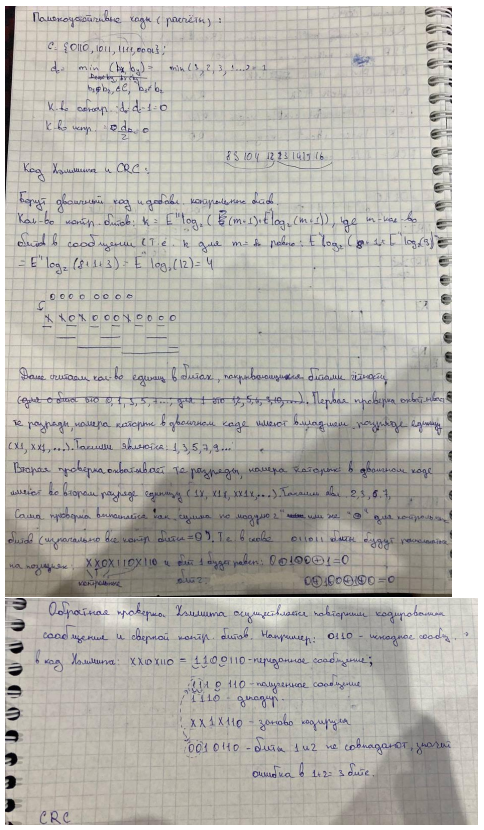 Помехоустойчивые коды (расчёты):
C = {0110, 1011, 1111, 0001};
d = min (b₁, b₂) = min(3, 2, 3, 1...) = 1
b₁≠b₂, ∈C, b₁≠b₂
К-во обнар. d-1=0
К-во испр. d/2=0
Код Хэмминга и CRC:
Берут двоичный код и добавл. контрольные битов.
Кол-во контр. битов: k = E"log₂( (m+1)+E"log₂(m+1)), где m - кол-во
битов в сообщении (т.е. k для m=8 равно: E"log₂(8+1+E"log₂(9))
= E"log₂(8+1+3) = E"log₂(12) = 4
0 0 0 0 0 0 0 0
X X 0 X 0 0 0 X 0 0 0 0
Далее считаем кол-во единиц в битах, покрывающихся битами чётности
Первая проверка охватывает
те разряды, номера которые в двоичном коде имеют в младшем разряде единицу
(X1, XX1,...). Такими являются: 1,3,5,7,9...
Вторая проверка охватывает те разряды, номера которые в двоичном коде
имеют во втором разряде единицу (1X, X1X, XX1X,...). Такими явл. 2,3,6,7,
Сама проверка выполняется как сумма по модулю 2 или же "⊕" для контрольных
битов (изначально все контр. биты =0). Т.е. в слове 011011 биты будут
на позициях: XX0X110X110 и бит 1 будет равен: 0⊕1⊕0⊕1=0
контрольные бит 2:
Обратная проверка Хэмминга осуществляется повторным кодированием
сообщение и сверкой контр. битов. Например: 0110 - исходное сообщ.
в код Хэмминга: XX0X110 = 1100110 - переданное сообщение;
1110110 - полученное сообщение
1110 - декодир.
XX1X110 - заново кодируем
0010110 - биты 1 и 2 не совпадают, значит
ошибка в 1+2=3 бите.
CRC